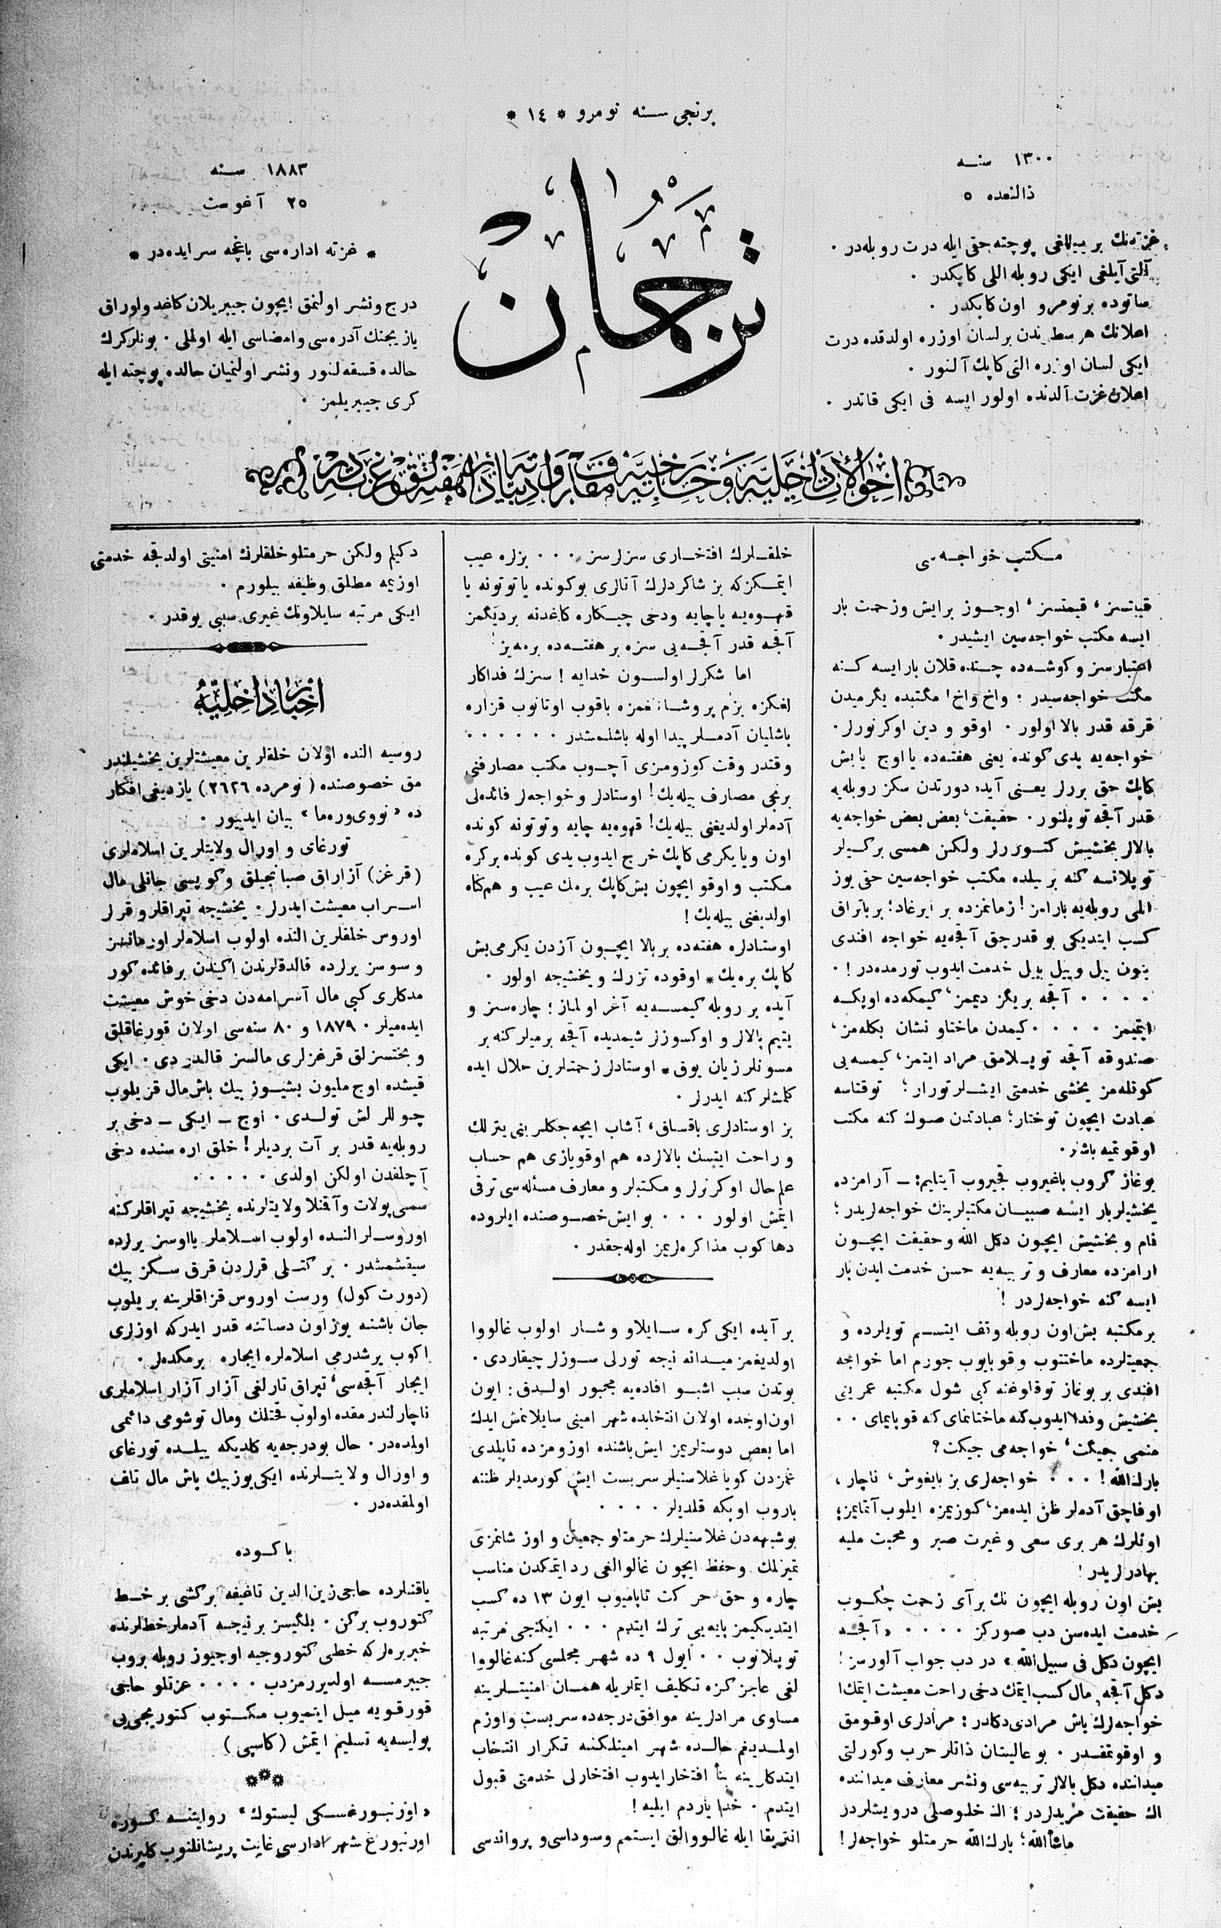 برنجی سنه نومرو * ١٤ *
١٣٠٠ سنه
ذالقعده ٥
غزته‌نك بر ییللغی پوچته حقی ایله درت روبله‌در .
آلتی آیلغی ایكی روبله اللی كاپكدر .
صاتوده بر نومرو اون كاپكدر .
اعلانك هر سطرندن بر لسان اوزره اولدقده درت
ایكی لسان اوزره التی كاپك آلنور .
اعلان غزت آلدنده اولور ایسه فی ایكی قاتدر .
ترجمان
١٨٨٣ سنه
٢٥ آغوست
* غزته اداره‌سی باغچه سرایده‌در *
درج و نشر اولنمق ایچون جیبریلان كاغد و اوراق
یازیجنك آدره‌سی و امضاسی ایله اولملی . بونلر كرك
حالده قسقه‌لنور و نشر اولنمیان حالده پوچته ایله
كری جیبریلمز .
مكتب خواجه‌سی
قیاتسز ، قیمتسز ، اوجوز بر ایش و زحمت بار
ایسه مكتب خواجه‌سین ایشیدر .
اعتبارسز و كوشه‌ده چتنده قلان بار ایسه كنه
مكتب خواجه‌سیدر . واخ واخ ! مكتبده یگرمیدن
قرقه قدر بالا اولور . اوقو و دین اوكرنورلر .
خواجه‌یه یدی كونده یعنی هفته‌ده یا اوچ یا بش
كاپك حق بررلر یعنی آیده دورتدن سكز روبله‌یه
قدر آقچه توپلنور . حقیقت ، بعض بعض خواجه‌یه
بالالر بخشیش كتوررلر ولكن همسی بركیلر
توپلانسه كنه بر ییلده مكتب خواجه‌سین حقی یوز
اللی روبله‌یه بارامز ! زمانمزده بر ایرغاد ؛ بر باتراق
كسب ایتدیكی بو قدرجق آقچه‌یه خواجه افندی
بتون ییل و ییل بییل خدمت ایدوب تورمه‌ده‌ر ! .
. . . . آقچه بریگز دیمز ، كیمكه‌ده اوپكه
ایتمیمز . . . . كیمدن ماختاو نشان بكله‌مز ،
صندوقه آقچه توپلامق مراد ایتمز ، كیمسه‌یی
كوتله‌مز یخشی خدمتی ایشلر تورار ؛ توقتاسه
عبادت ایچون توختار ؛ عبادتدن صوك كنه مكتب
اوقوتمیه باشلر .
بوغاز كروب باغیروب قچیروب آیتایم : — آرامزده
یخشیلر بار ایسه صبیان مكتبلرینك خواجه‌لریدر ؛
قام و بخشیش ایچون دكل الله و حقیقت ایچون
ارامزده معارف و تربیه‌یه حسن خدمت ایدن بار
ایسه كنه خواجه‌لردر !
بر مكتبه بش اون روبله وقف ایتسم تویلرده و
جمعیتلرده ماختنوب و قوبایوب جورم اما خواجه
افندی بر بوغاز توقلوغنه كبی شول مكتبه عمرینی
بخشیش و فدا ایدوب كنه ماختانمای كنه قوپایمای . .
منمی جیگت ، خواجه می جیكت ؟
بارك الله ! . . . خواجه‌لری بز بایغوش ، ناچار ،
اوفاجق آدملر ظن ایده‌مز ، كوزیمزه ایلوب آتمایمز ؛
اونلرك هر بری سعی و غیرت صبر و محبت ملیه
بهادرلریدر !
بش اون روبله ایچون نك بر آی زحمت چكوب
خدمت ایده‌سن دب صورركز . . . . « آقچه
ایچون دكل فی سبیل الله » در دب جواب آلورسز !
دكل آقچه ، مال كسب ایتمك دخی راحت معیشت ایتمك !
خواجه‌لرك باش مرادی دكلدر : مرادلری اوقومق
و اوقوتمقدر . بو عالیشان ذاتلر حرب و كورلتی
میداننده دكل بالالر تربیه‌سی و نشر معارف میداننده
الك حقیقت مریدلردر ؛ الك خلوصلی درویشلردر
ماشأ الله ؛ بارك الله حرمتلو خواجه‌لر !
خلقلرك افتخاری سزلرسز . . . بزلره عیب
ایتمكزكه بز شاكردلرك آنالری بو كونده یا توتونه یا
قهوه‌یه یا چایه ودخی چیكاره كاغدنه بردیگمز
آقچه قدر آقچه‌یی سزه بر هفته‌ده برمه‌یز !
اما شكرلر اولسون خدایه ! سزك فداكار
لغكزه بزم پروشانلغمزه باقوب اوتانوب قزاره
باشلیان آدملر پیدا اوله باشلمشدر . . . . . .
وقتدر وقت كوزومزی آچوب مكتب مصارفنی
برنجی مصارف بیله‌یك ! اوستادلر و خواجه‌لر فائده‌لی
آدملر اولدیغنی بیله‌یك ! قهوه‌یه چایه و توتونه كونده
اون و یا یكرمی كاپك خرج ایدوب یدی كونده بر كره
مكتب و اوقو ایچون بش كاپك برمك عیب و هم كناه
اولدیغنی بیله‌یك !
اوستادلره هفته‌ده بر بالا ایچون آزدن یكرمی بش
كاپك بره‌یك * اوقوده تزرك و یخشیجه اولور .
آیده بر روبله كیمسه‌یه آغر اولماز ؛ چاره‌سز و
یتیم بالالر و اوكسوزلر شیمدیده آقچه برمیلر كنه بر
مسونلر زیان یوق * اوستادلر زحمتلرین حلال ایده
كلمشلر كنه ایدرلر .
بز اوستادلری باقساق ، آشاب ایچه‌جكلرینی یترلك
و راحت ایتسك بالالرده هم اوقو یازی هم حساب
علم حال اوكرنرلر و مكتبلر و معارف مسئله‌سی ترقی
ایتمش اولور . . . بو ایش خصوصنده ایلروده
دها كوب مذاكره‌لریمز اوله‌جقدر .
بر آیده ایكی كره سایلاو و شار اولوب غالووا
اولدیغمز میدانه نیجه تورلی سوزلر چیقاردی .
بوندن سبب اشبو افاده‌یه مجبور اولدق : ایون
اون اوچده اولان انتخابده شهر امینی سایلانمش ایدك
اما بعض دوستلریمز ایش باشنده اوزومزده تاپلدی
غمزدن كویا غلاسنیلر سربست ایش كورمدیلر ظننه
باروب اوپكه قلدیلر . . . .
بو شبهه‌دن غلاسنیلرك حرمتلو جمعیتن و اوز شانمزی
تمیزلمك و حفظ ایچون غالوالغی رد ایتمكدن مناسب
چاره و حق حركت تاپامیوب ایون ١٣ ده كسب
ایتدیكیمز پایه‌یی ترك ایتدم . . . ایكنجی مرتبه
توپلانوب . . ایول ٩ ده شهر مجلسی كنه غالووا
لغی عاجزكزه تكلیف ایتملریله همان امنیتلرینه
مساوی مرادلرینه موافق درجه‌ده سربست و اوزم
اولمدیغم حالده شهر امینلكنه تكرار انتخاب
ایتدكلرینه بنأ افتخار ایدوب افتخارلی خدمتی قبول
ایتدم . خدا یاردم ایلیه !
انتریقا ایله غالووالق ایستمم و سوداسی و پروانه‌سی
دكیلم ولكن حرمتلو خلقلرك امنیتی اولدقجه خدمتی
اوزیمه مطلق وظیفه بیلورم .
ایكی مرتبه سایلاونك غیری سببی یوقدر .
اخبار داخلیه
روسیه النده اولان خلقلرین معیشتلرین یخشیلندر
مق خصوصنده ( نومرده ٢٦٢٦ ) یازدیغی افكار
ده « نووی وره‌ما » بیان ایدییور .
تورغای و اورال ولایتلرین اسلاملری
(قرغز) آزاراق صبانجیلق و كوپیسی جانلی مال
اسراب معیشت ایدرلر . یخشیجه تپراقلر و قرلر
اوروس خلقلرین النده اولوب اسلاملر اورمانسز
و سوسز یرلرده قالدقلرندن اكیندن بر فائده كور
مدكلری كبی مال آسرامه‌دن دخی خوش معیشت
ایده‌میلر . ١٨٧٩ و ٨٠ سنه‌سی اولان قورغاقلق
و بختسزلق قرغزلری مالسز قالدردی . ایكی
قیشده اوچ ملیون بشیوز بیك باش مال قزیلوب
چوللر لش تولدی . اوچ — ایكی — دخی بر
روبله‌یه قدر بر آت بردیلر ! خلق اره‌سنده دخی
آچلقدن اولكن اولدی . . . . .
سمی پولات و آقمللا ولایتلرنده یخشیجه تپراقلر كنه
اوروسلر النده اولوب اسلاملر یاووسز یرلرده
سیقشمشدر . بركتلی قرلردن قرق سكز بیك
(دورت كول) ورست اوروس قزاقلرینه بریلوب
جان باشنه یوز اون دساتنه قدر ایدر كه اوزلری
اكوب یرشدرمی اسلاملره ایجاره بر مكده‌لر .
ایجار آقچه‌سی ، تپراق تارلغی آزار آزار اسلاملری
ناچارلندرمقده اولوب قحتلك و مال توشومی دائمی
اولمده‌در . حال بو درجه‌یه كلدیكه ییلده تورغای
و اورال ولایتلرنده ایكی یوز بیك باش مال تلف
اولمقده‌در .
باكوده
یاقنلرده حاجی زین الدین تاغیفه بر كشی بر خط
كتوروب برگن . بلگیسز بر نیجه آدملر خطلرنده
خبر بره‌لر كه خطی كتوروجیه اوچیوز روبله بروب
جیبرمسه اولدیررمز دب . . . . عزتلو حاجی
قورقویه میل ایتمیوب مكتوب كتوریجی‌یی
پولیسه‌یه تسلیم ایتمش (كاسپی)
« اورنبورغسكی لیستوك » روایتنه كوره
اورنبورغ شهر اداره‌سی غایت پریشانلنوب كلیرندن